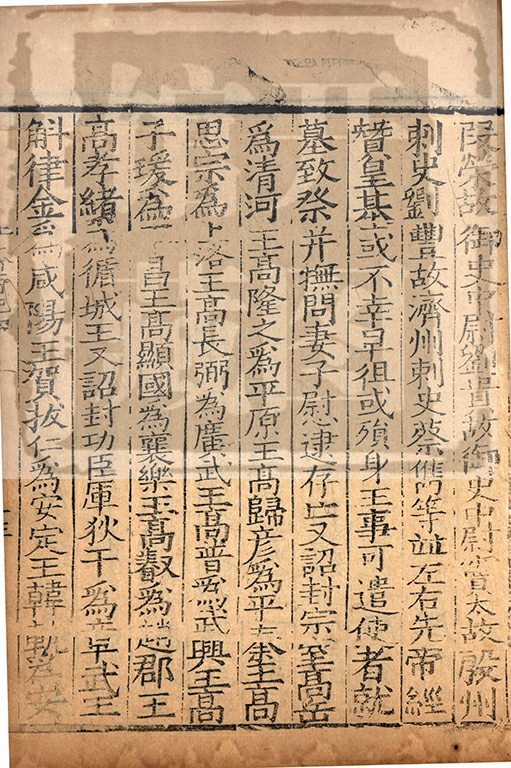 段榮故御史中尉劉貴故御史中尉竇泰故殷州
刺史劉豐故濟州刺史蔡儁等並左右先帝經
贊皇基或不幸早徂或殞身王事可遣使者就
墓致祭并撫問妻子慰逮存亡又詔封宗室高岳
為清河王高隆之為平原王高歸彦為平秦王高
思宗為上洛王高長弼為廣武王高普為武興王高
子瑗為 昌王高顯國為襄樂王高叡為趙郡王
高孝緒為循城王又詔封功臣厙狄干為章武王
斛律金為咸陽王賀拔仁為安定王韓軌為安